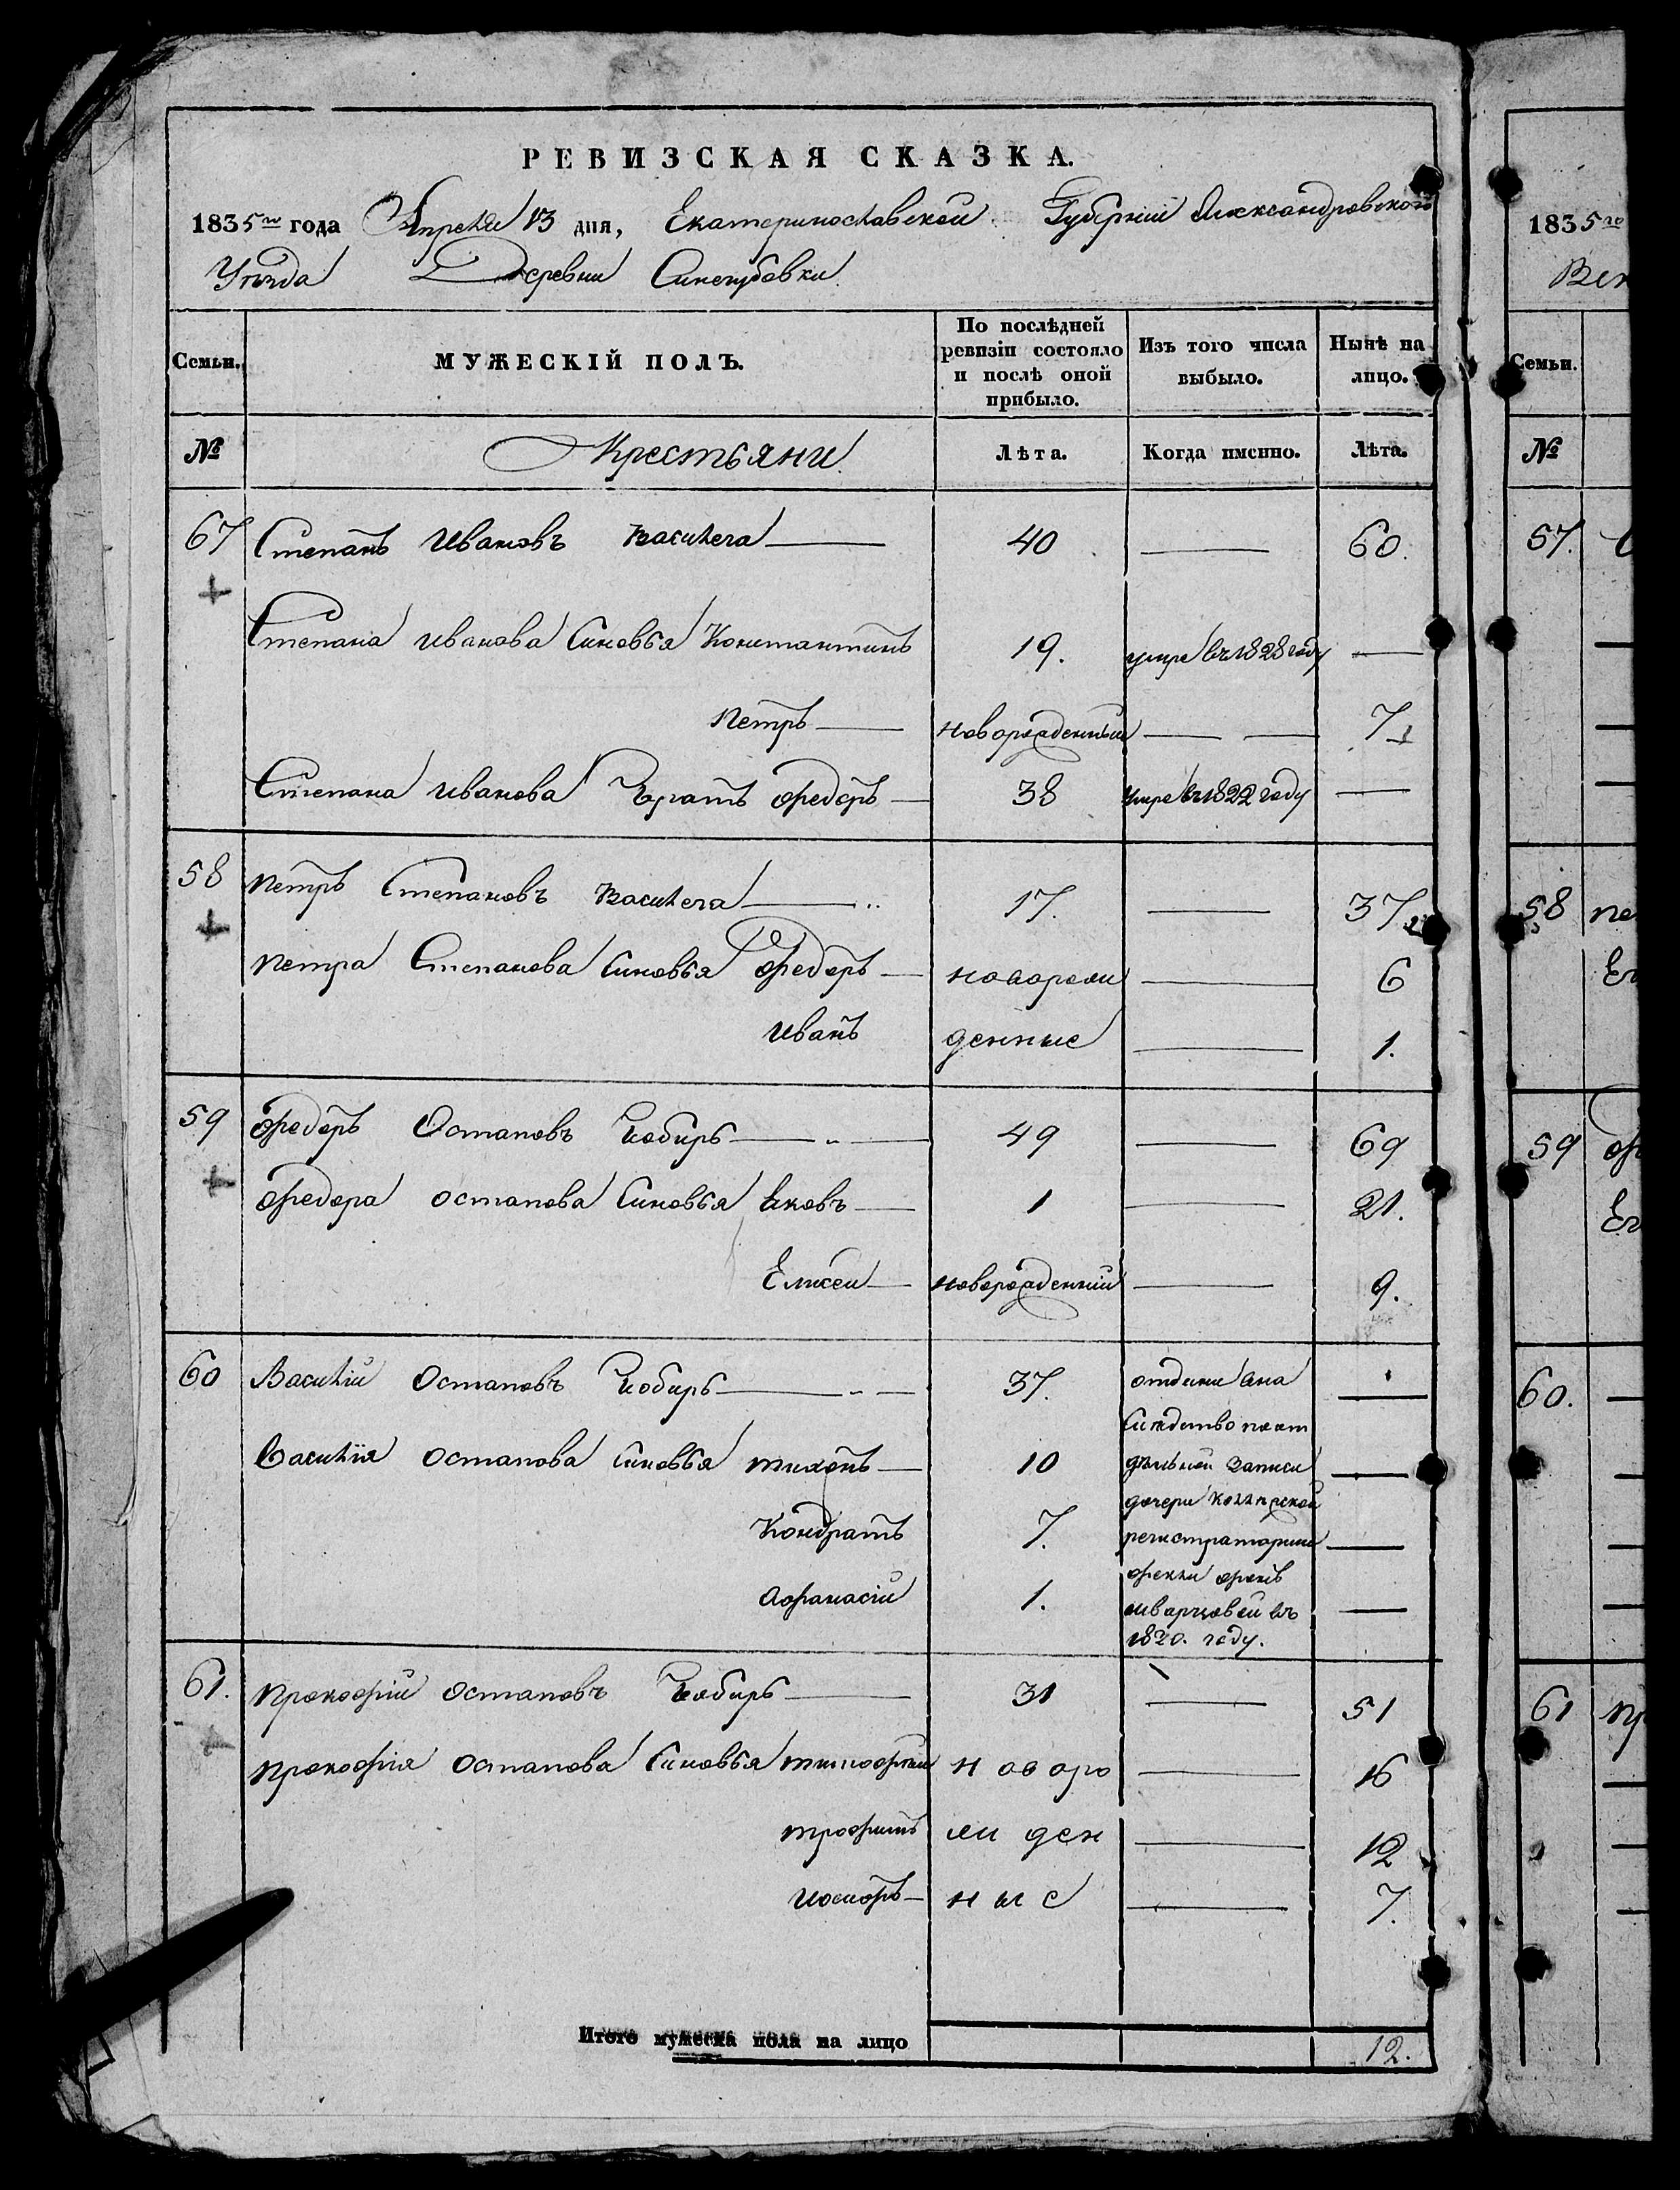 РЕВИЗСКАЯ СКАЗКА.
1835го года Апреля 13 дня, Екатеринославской Губерніи Александровского
Уѣзда Деревни Синегубовки.
Семьи. МУЖЕСКІЙ ПОЛЪ. По послѣдней ревизіи состояло и послѣ оной прибыло. Изъ того числа выбыло. Нынѣ на лицо.
№ Крестьяни. Лѣта. Когда имснно. Лѣта.
67 Степанъ Ивановъ 40 — 60.
Степана иванова Синовья Константинъ 19. умре въ 1828 году —
петръ новорожденный — 7
Степана иванова братъ федоръ 38 умре въ 1822 году —
58 петръ Степановъ 17. — 37.
петра Степанова Синовья федоръ новорож — 6
иванъ денные — 1.
59 федоръ Остаповъ Чобиръ 49 — 69
федора остапова Синовья Яковъ 1 — 21.
Елисей новорожденний — 9.
60 Василій Остаповъ Чобиръ 37. —
Василія остапова Синовья тихонъ 10 —
Кондратъ 7. —
афанасій 1. —
записи
дочери
регистраторши
въ
1820. году.
61. прокофій остаповъ Чобиръ 31 — 51
прокофія остапова Синовья тимофей н ов оро — 16
трофимъ ж ден — 12
н ы е — 7.
Итого мужеска пола на лицо 12.
1835го
Семьи.
№
57.
58
59
60.
61